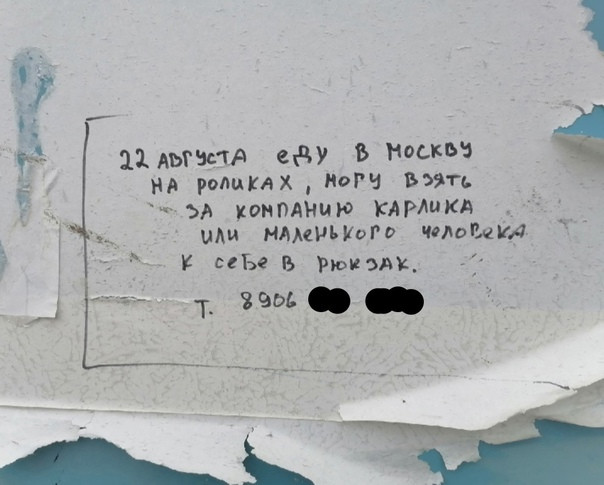 22 августа еду в Москву
на роликах, могу взять
за компанию карлика
или маленького человека
к себе в рюкзак.
т. 8906